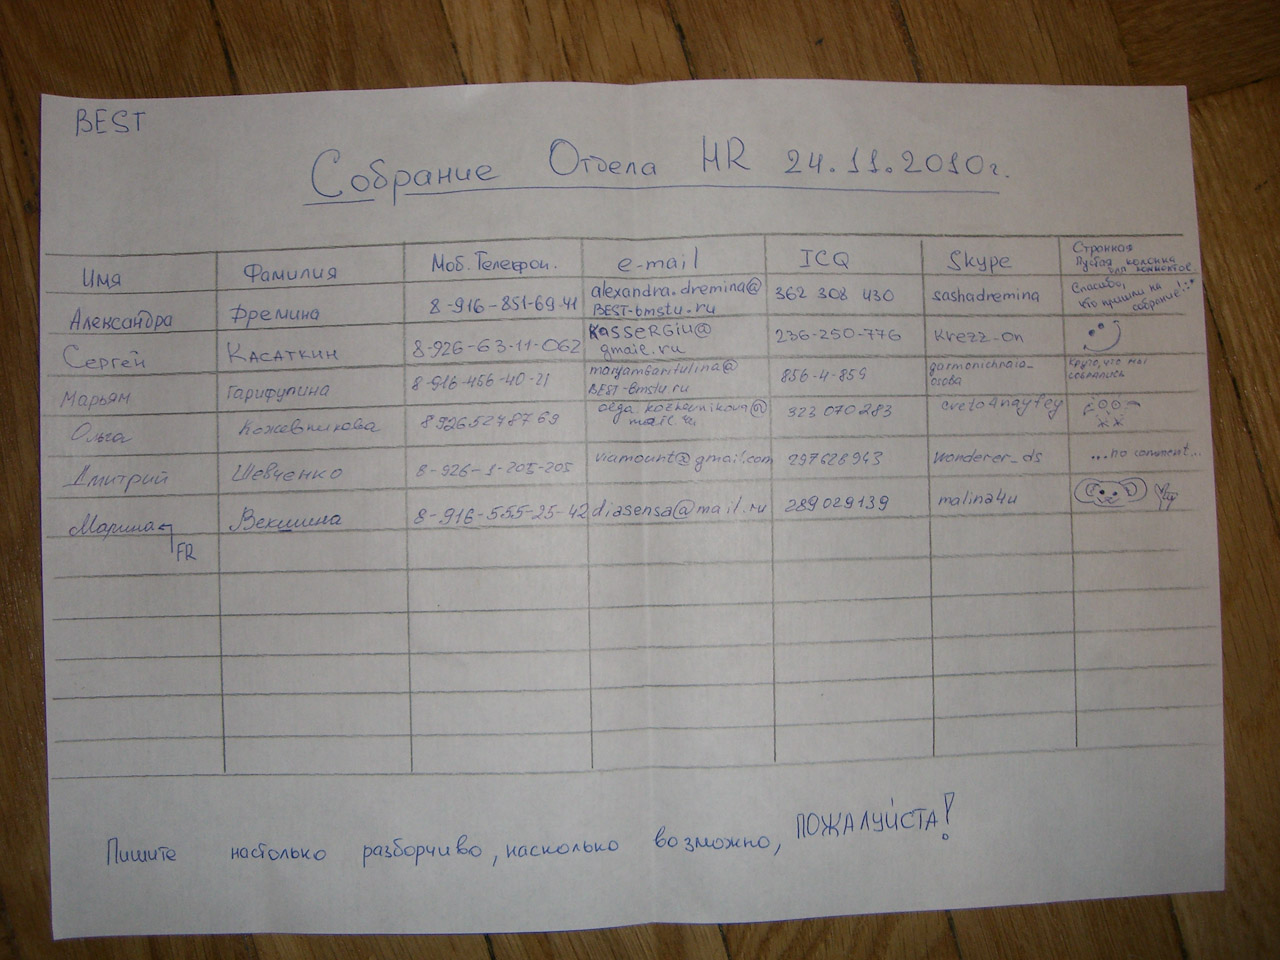 BEST
Собрание Отдела HR 24.11.2010г.
Имя Фамилия Моб. Телефон. e-mail ICQ Skype Странная Пустая колонка для комментов.
Александра Дремина 8-916-851-69-41 alexandra.dremina@ BEST-bmstu.ru 362 308 430 sashadremina Спасибо, кто пришли на собрание!
Сергей Касаткин 8-926-63-11-062 KasseRGiu@ gmail.ru 236-250-776 Krezz_on
Марьям Гарифулина 8-916-456-40-21 maryamGarifulina@ BEST-bmstu.ru 856-4-859 garmonichnaia_ osoba круто, что мы собрались
Ольга Кожевникова 89265248769 olga kozhevnikova@ mail.ru 323 070 283 cveto4nayfey
Дмитрий Шевченко 8-926-1-205-205 viamount@gmail.com 297628943 wonderer_ds ...no comment...
Марина Векшина 8-916-555-25-42 diasensa@mail.ru 289029139 malina4u
FR
Пишите настолько разборчиво, насколько возможно, ПОЖАЛУЙСТА!